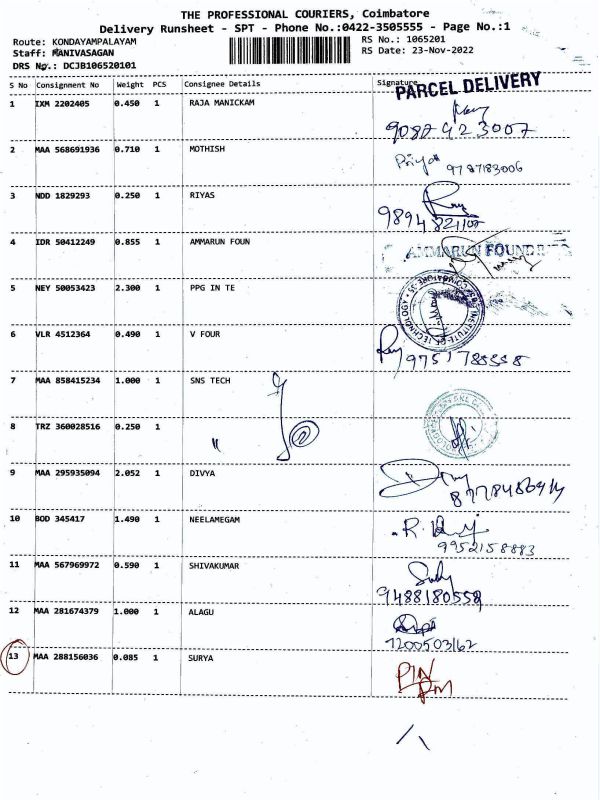 THE PROFESSIONAL COURIERS, Coimbatore
Delivery Runsheet - SPT - Phone No.:0422-3505555 - Page No.:1
Route: KONDAYAMPALAYAM
RS No.: 1065201
Staff: MANIVASAGAN
RS Date: 23-Nov-2022
DRS No.: DCJB106520101
S No Consignment No Weight PCS Consignee Details Signature
PARCEL DELIVERY
1 IXM 2202405 0.450 1 RAJA MANICKAM
9087423007
2 MAA 568691936 0.710 1 MOTHISH Priya 9787183006
3 NDD 1829293 0.250 1 RIYAS
9894821102
4 IDR 50412249 0.855 1 AMMARUN FOUN AMMARUN FOUNDRIES
5 NEY 50053423 2.300 1 PPG IN TE INSTITUTE OF TECHNOLOGY
6 VLR 4512364 0.490 1 V FOUR
9751788558
7 MAA 858415234 1.000 1 SNS TECH
8 TRZ 360028516 0.250 1 "
9 MAA 295935094 2.052 1 DIVYA
10 BOD 345417 1.490 1 NEELAMEGAM
9952158883
11 MAA 567969972 0.590 1 SHIVAKUMAR
9488180558
12 MAA 281674379 1.000 1 ALAGU
7200503162
13 MAA 288156036 0.085 1 SURYA